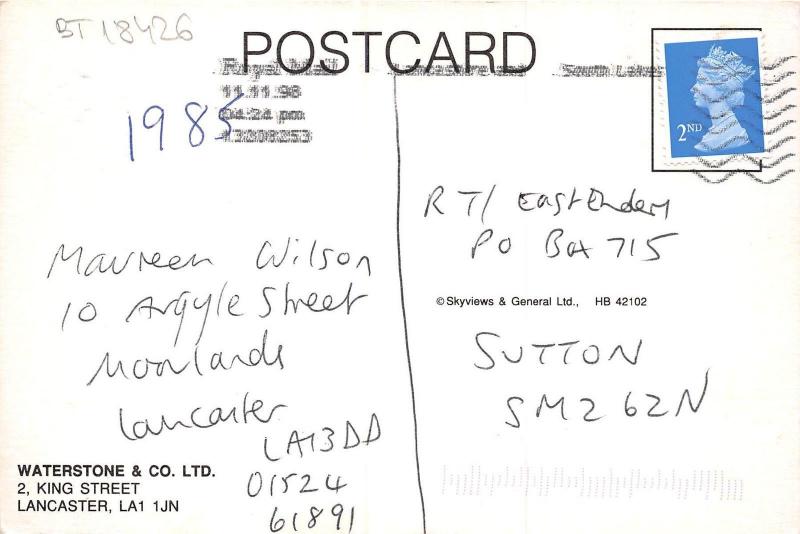 BT 18426
POSTCARD
Royal Mail Lancashire and South Lakes
11.11.98
04:24 pm
1985
2ND
RT/ EastEnders
PO Box 715
© Skyviews & General Ltd., HB 42102
SUTTON
SM2 6ZN
Maureen Wilson
10 Argyle Street
Moorlands
Lancaster
LA13DD
01524
61891
WATERSTONE & CO. LTD.
2, KING STREET
LANCASTER, LA1 1JN